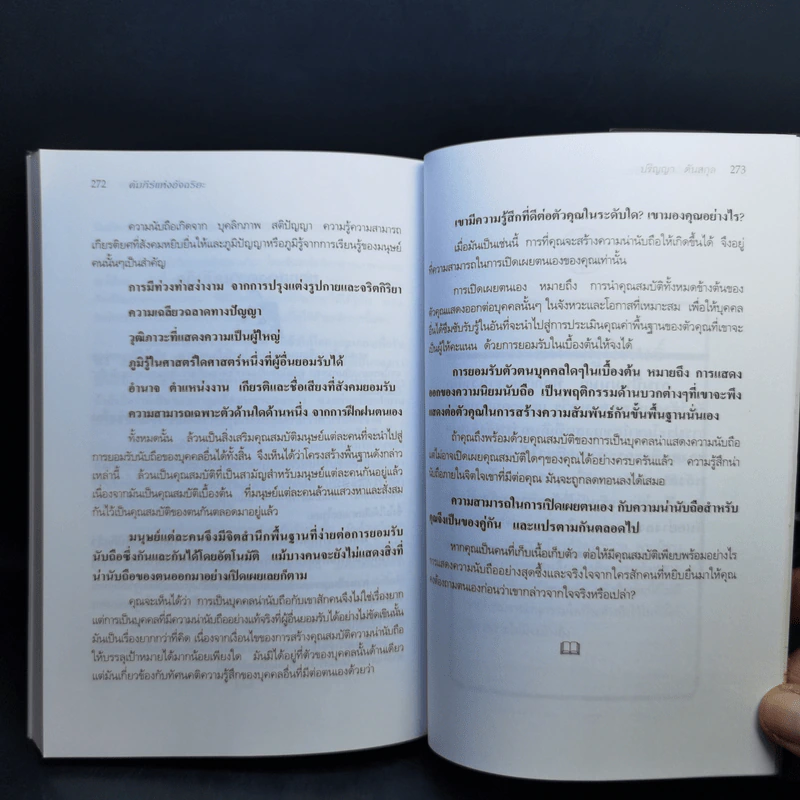 272 คัมภีร์แห่งอัจฉริยะ
ความนับถือเกิดจาก บุคลิกภาพ สติปัญญา ความรู้ความสามารถ
เกียรติยศที่สังคมหยิบยื่นให้และภูมิปัญญาหรือภูมิรู้จากการเรียนรู้ของมนุษย์
คนนั้นๆเป็นสำคัญ
การมีท่วงท่าสง่างาม จากการปรุงแต่งรูปกายและจริตกิริยา
ความเฉลียวฉลาดทางปัญญา
วุฒิภาวะที่แสดงความเป็นผู้ใหญ่
ภูมิรู้ในศาสตร์ใดศาสตร์หนึ่งที่ผู้อื่นยอมรับได้
อำนาจ ตำแหน่งงาน เกียรติและชื่อเสียงที่สังคมยอมรับ
ความสามารถเฉพาะตัวด้านใดด้านหนึ่ง จากการฝึกฝนตนเอง
ทั้งหมดนั้น ล้วนเป็นสิ่งเสริมคุณสมบัติมนุษย์แต่ละคนที่จะนำไปสู่
การยอมรับนับถือของบุคคลอื่นได้ทั้งสิ้น จึงเห็นได้ว่าโครงสร้างพื้นฐานดังกล่าว
เหล่านี้ ล้วนเป็นคุณสมบัติที่เป็นสามัญสำหรับมนุษย์แต่ละคนกันอยู่แล้ว
เนื่องจากมันเป็นคุณสมบัติเบื้องต้น ที่มนุษย์แต่ละคนล้วนแสวงหาและสั่งสม
กันไว้เป็นคุณสมบัติของตนกันตลอดมาอยู่แล้ว
มนุษย์แต่ละคนจึงมีจิตสำนึกพื้นฐานที่ง่ายต่อการยอมรับ
นับถือซึ่งกันและกันได้โดยอัตโนมัติ แม้บางคนจะยังไม่แสดงสิ่งที่
น่านับถือของตนออกมาอย่างเปิดเผยเลยก็ตาม
คุณจะเห็นได้ว่า การเป็นบุคคลน่านับถือกับเขาสักคนจึงไม่ใช่เรื่องยาก
แต่การเป็นบุคคลที่มีความน่านับถืออย่างแท้จริงที่ผู้อื่นยอมรับได้อย่างไม่ขัดเขินนั้น
มันเป็นเรื่องยากกว่าที่คิด เนื่องจากเงื่อนไขของการสร้างคุณสมบัติความน่านับถือ
ให้บรรลุเป้าหมายได้มากน้อยเพียงใด มันมิได้อยู่ที่ตัวของบุคคลนั้นด้านเดียว
แต่มันเกี่ยวข้องกับทัศนคติความรู้สึกของบุคคลอื่นที่มีต่อตนเองด้วยว่า
ปริญญา ตันสกุล 273
เขามีความรู้สึกที่ดีต่อตัวคุณในระดับใด? เขามองคุณอย่างไร?
เมื่อมันเป็นเช่นนี้ การที่คุณจะสร้างความน่านับถือให้เกิดขึ้นได้ จึงอยู่
ที่ความสามารถในการเปิดเผยตนเองของคุณเท่านั้น
การเปิดเผยตนเอง หมายถึง การนำคุณสมบัติทั้งหมดข้างต้นของ
ตัวคุณแสดงออกต่อบุคคลนั้นๆ ในจังหวะและโอกาสที่เหมาะสม เพื่อให้บุคคล
อื่นได้ซึมซับรับรู้ในอันที่จะนำไปสู่การประเมินคุณค่าพื้นฐานของตัวคุณที่เขาจะ
เป็นผู้ให้คะแนน ด้วยการยอมรับในเบื้องต้นให้จงได้
การยอมรับตัวตนบุคคลใดๆในเบื้องต้น หมายถึง การแสดง
ออกของความนิยมนับถือ เป็นพฤติกรรมด้านบวกต่างๆที่เขาจะพึง
แสดงต่อตัวคุณในการสร้างความสัมพันธ์กันขั้นพื้นฐานนั่นเอง
ถ้าคุณพร้อมด้วยคุณสมบัติของการเป็นบุคคลน่าแสดงความนับถือ
แต่ไม่อาจเปิดเผยคุณสมบัติใดๆของคุณได้อย่างครบครันแล้ว ความรู้สึกน่า
นับถือภายในจิตใจเขาที่มีต่อคุณ มันจะถูกลดทอนลงได้เสมอ
ความสามารถในการเปิดเผยตนเอง กับความน่านับถือสำหรับ
คุณจึงเป็นของคู่กัน และแปรตามกันตลอดไป
หากคุณเป็นคนที่เก็บเนื้อเก็บตัว ต่อให้มีคุณสมบัติเพียบพร้อมอย่างไร
การแสดงความนับถืออย่างสุดซึ้งและจริงใจจากใครสักคนที่หยิบยื่นมาให้คุณ
คงต้องถามตนเองก่อนว่าเขากล่าวจากใจจริงหรือเปล่า?